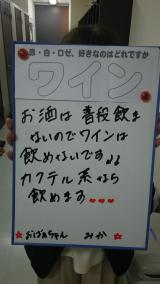 赤・白・ロゼ、好きなのはどれですか
ワイン
お酒は普段飲ま
ないのでワインは
飲めないです
カクテル系なら
飲めます♥♥♥
おばあちゃん みか